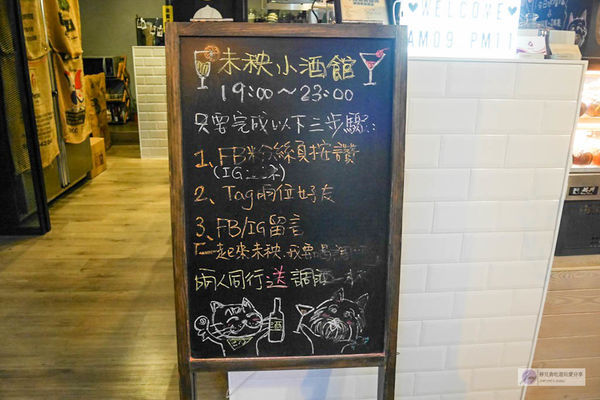 WELCOME
AM09 PM11
未秧小酒館
19:00～23:00
只要完成以下三步驟:
1、FB粉絲頁按讚
(IG
2、Tag兩位好友
3、FB/IG留言
一起來未秧
兩人同行送調酒一杯
酒